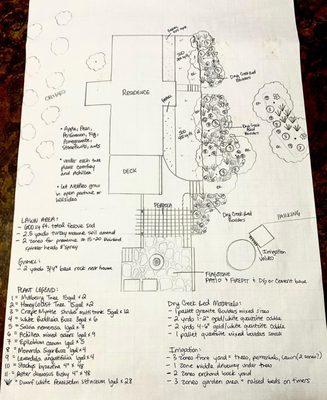 RESIDENCE
ORCHARD
• Apple, Pear,
Persimmon, Fig,
Pomegranate,
• Under each tree
plant comfrey
and Achillea
• Let Natives grow
in open pasture or
wild sides
Dry Creek Bed
Boulders
Dry Creek Bed
Boulders
DECK
PERGOLA
Dry Creek Bed
Boulders
PARKING
Irrigation
Valves
FLAGSTONE
PATIO + FIREPIT
LAWN AREA:
600 sq ft. total fescue sod
2.5 yards turf soil amend
2 zones for
spray
GRAVEL:
- 2 yards 3/4" base rock near home
PLANT LEGEND:
1 = Mulberry Tree 15gal x 2
2 = Honey Locust Tree 15gal x 2
3 = Crape Myrtle shrub multi trunk 5gal x 12
4 = White Buddleia Bush 5gal x 6
5 = Salvia nemorosa 1gal x
6 = Achillea mixed colors 1gal x 9
7 = Epilobium canum 1gal x 5
8 = Monarda 1gal x 9
9 = Lavandula angustifolia 1gal x
10 = Stachys byzantina 4" x 48
11 = Aster 4" x 48
= Dwarf White Pennisetum 1gal x 28
Dry Creek Bed Materials:
- 1 pallet granite boulders mixed sizes
- 2 yrds 1-2" gold/white quartzite cobble
- 2 yrds 4-6" gold/white quartzite cobble
- 1 pallet quartzite mixed boulder sizes
Irrigation:
- 3 zones front yard = trees, perennials, lawn (2 zones?)
- 1 zone middle driveway under trees
- 2 zones orchard back yard
- 3 zones garden area = raised beds on timers